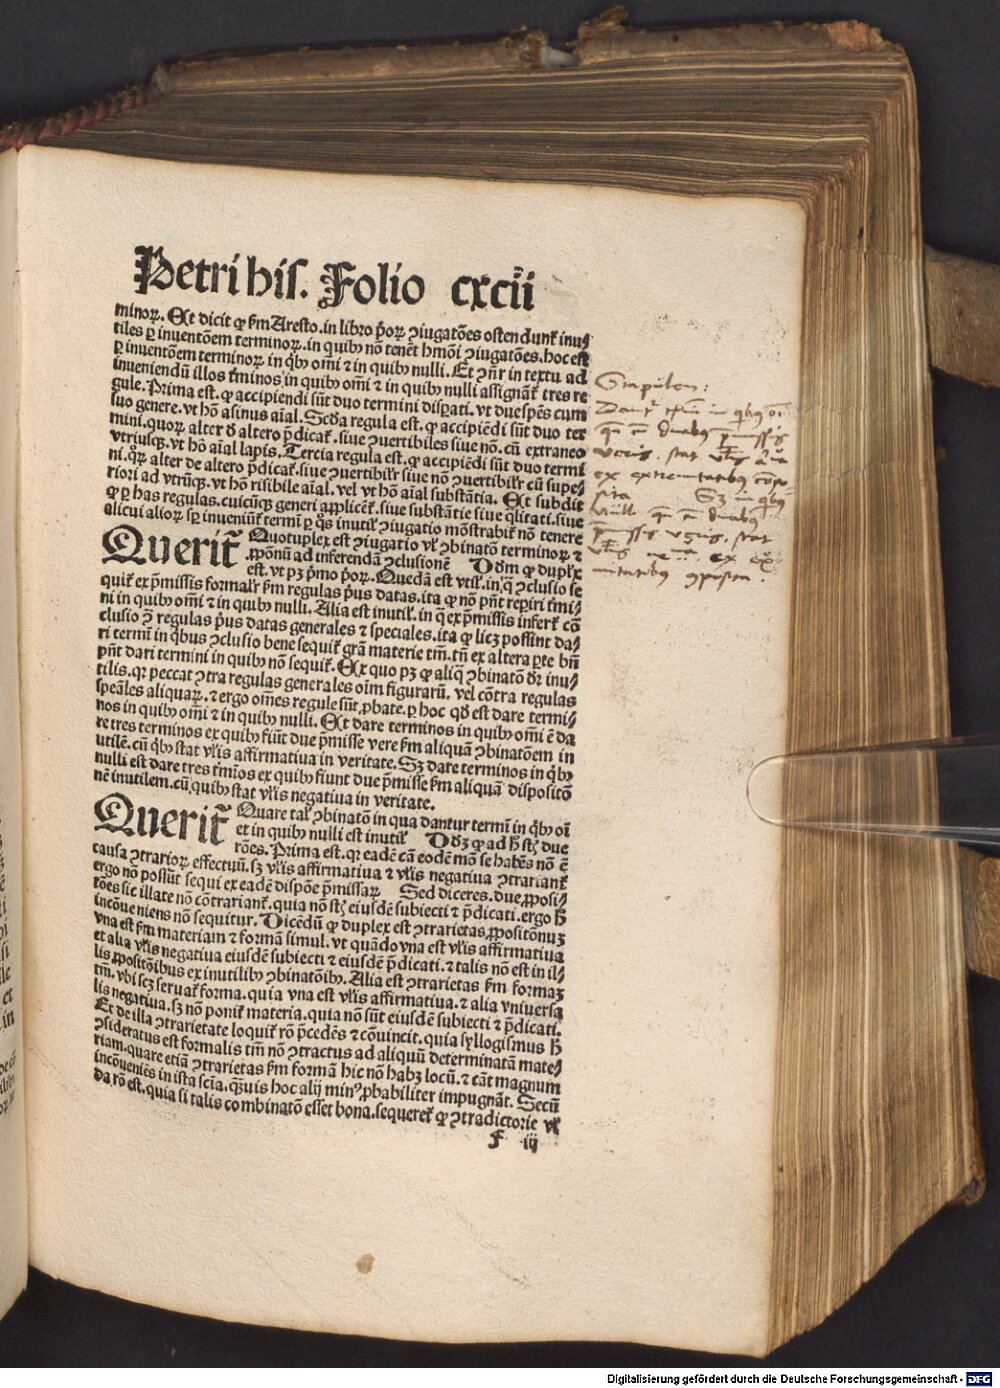 Petri his. Folio cxcii
minoꝝ. Et dicit ꝙ ẜm Aresto. in libro p̄oꝝ ꝯiugatōes ostendunt̄ inu⸗
tiles ꝑ inuentōem terminoꝝ. in quibꝰ nō tenēt hmōi ꝯiugatōes. hoc est
ꝑ inuentōem terminoꝝ in q̇bꝰ om̄i ⁊ in quibꝰ nulli. Et ꝯn̄r in textu ad
inueniendū illos t̄minos in quibꝰ om̄i ⁊ in quibꝰ nulli assignāt̄ tres re
gule. Prima est. ꝙ accipiendi sūt duo termini disꝑati. vt due spēs cum
suo genere. vt hō asinus aīal. Scd̄a regula est. ꝙ accipiēdi sūt duo ter
mini. quoꝝ alter ꝺ altero p̄dicat̄. siue ꝯuertibiles siue nō. cū extraneo
vtriusqꝫ. vt hō aīal lapis. Tercia regula est. ꝙ accipiēdi sūt duo termi
ni. qͦꝝ alter de altero p̄dicat̄. siue ꝯuertibilr̄ siue nō ꝯuertibilr̄ cū supe⸗
riori ad vtrūqꝫ. vt hō risibile aīal. vel vt hō aīal substātia. Et subdit
ꝙ ꝑ has regulas. cuicūqꝫ generi applicēt̄. siue substātie siue q̄litati. siue
alicui alioꝝ sꝑ inueniūt̄ termī ꝑ q̄s inutil̄ ꝯiugatio mōstrabit̄ nō tenere
Querit̄ Quotuplex est ꝯiugatio vl̓ ꝯbinatō terminoꝝ ⁊
ꝓpōnū ad inferendā ꝯclusionē Dd̓m ꝙ duplex
est. vt pꝫ p̓mo p̄oꝝ. Quedā est vtil̓. in q̄ ꝯclusio se
quit̄ ex p̄missis formalr̄ ẜm regulas p̓us datas. ita ꝙ nō pn̄t reperiri t̄mi⸗
ni in quibꝰ om̄i ⁊ in quibꝰ nulli. Alia est inutil̓. in q̄ ex p̄missis infert̄ cō
clusio ꝯ̄ regulas p̓us datas generales ⁊ speciales. ita ꝙ licꝫ possint da⸗
ri termī in q̇bus ꝯclusio bene sequit̄ gr̄a materie tm̄. tn̄ ex altera ꝑte bn̄
pn̄t dari termini in quibꝰ nō sequit̄. Ex quo pꝫ ꝙ aliq̄ ꝯbinatō dr̄ inu⸗
tilis. qꝛ peccat ꝯtra regulas generales oīm figurarū. vel cōtra regulas
speāles aliquaꝝ. ⁊ ergo om̄es regule sūt ꝓbate. ꝑ hoc qd̓ est dare termi⸗
nos in quibꝰ om̄i ⁊ in quibꝰ nulli. Et dare terminos in quibꝰ om̄i ē da
re tres terminos ex quibꝰ fiūt due p̄misse vere ẜm aliquā ꝯbinatōem in
utilē. cū q̇bꝰ stat vl̓is affirmatiua in veritate. Sꝫ dare terminos in q̇bꝰ
nulli est dare tres t̄mīos ex quibꝰ fiunt due p̄misse ẜm aliquā dispositō
nē inutilem. cū quibꝰ stat vl̓is negatiua in veritate.
Querit̄ Quare tal̓ ꝯbinatō in qua dantur termī in q̇bꝰ oī
et in quibꝰ nulli est inutil̓ Dd̓ꝫ ꝙ ad h̓ st̄ due
rōes. Prima est. qꝛ eadē cā eodē mō se habēs nō ē
causa ꝯtrarioꝝ effectuū. sꝫ vl̓is affirmatiua ⁊ vl̓is negatiua ꝯtrariant̄
ergo nō possūt sequi ex eadē dispōe p̄missaꝝ Sed diceres. due ꝓposi⸗
tōes sic illate nō cōtrariant̄. quia nō st̄ eiusdē subiecti ⁊ p̄dicati. ergo h̓
incōueniens nō sequitur. Dicēdū ꝙ duplex est ꝯtrarietas ꝓpositōnuꝫ
vna est ẜm materiam ⁊ formā simul. vt quādo vna est vl̓is affirmatiua
et alia vl̓is negatiua eiusdē subiecti ⁊ eiusdē p̄dicati. ⁊ talis nō est in il⸗
lis ꝓpositōibus ex inutilibꝰ ꝯbinatōibꝰ. Alia est ꝯtrarietas ẜm formaꝫ
tm̄. vbi scꝫ seruat̄ forma. quia vna est vl̓is affirmatiua. ⁊ alia vniuersa
lis negatiua. sꝫ nō ponit̄ materia. quia nō sūt eiusdē subiecti ⁊ p̄dicati.
Et de illa ꝯtrarietate loquit̄ rō p̄cedēs ⁊ cōuincit. quia syllogismus h̓
ꝯsideratus est formalis tm̄ nō ꝯtractus ad aliquā determinatā mate⸗
riam. quare etiā ꝯtrarietas ẜm formā hic nō habꝫ locū. ⁊ cāt magnum
incōueniēs in ista sciā. quis hoc alij minꝰ ꝓbabiliter impugnāt. Secū
da rō est. quia si talis combinatō esset bona. sequeret̄ ꝙ ꝯtradictorie vl̓
F iij
Digitalisierung gefördert durch die Deutsche Forschungsgemeinschaft - DFG